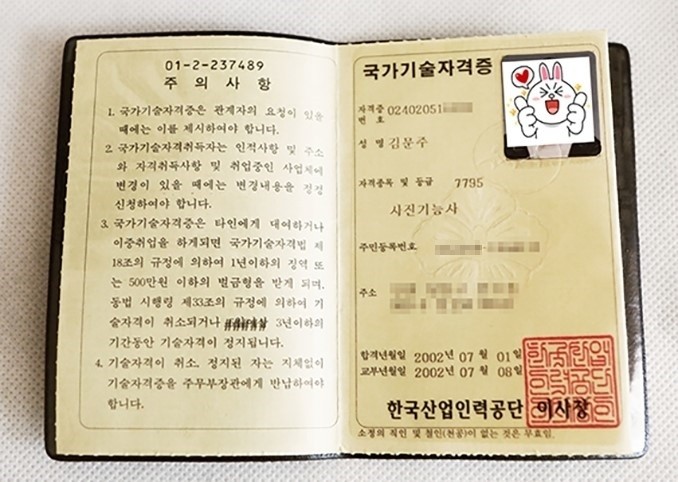 01-2-237489
주 의 사 항
1. 국가기술자격증은 관계자의 요청이 있을
때에는 이를 제시하여야 합니다.
2. 국가기술자격취득자는 인적사항 및 주소
와 자격취득사항 및 취업중인 사업체에
변경이 있을 때에는 변경내용을 정정
신청하여야 합니다.
3. 국가기술자격증은 타인에게 대여하거나
이중취업을 하게되면 국가기술자격법 제
18조의 규정에 의하여 1년이하의 징역 또
는 500만원 이하의 벌금형을 받게 되며,
동법 시행령 제33조의 규정에 의하여 기
술자격이 취소되거나 3년이하의
기간동안 기술자격이 정지됩니다.
4. 기술자격이 취소, 정지된 자는 지체없이
기술자격증을 주무부장관에게 반납하여야
합니다.
국가기술자격증
자격증
번 호 02402051
성 명 김문주
자격종목 및 등급 7795
사진기능사
주민등록번호
주소
합격년월일 2002년 07월 01일
교부년월일 2002년 07월 08일
한국산업인력공단 이사장
소정의 직인 및 철인(천공)이 없는 것은 무효임.